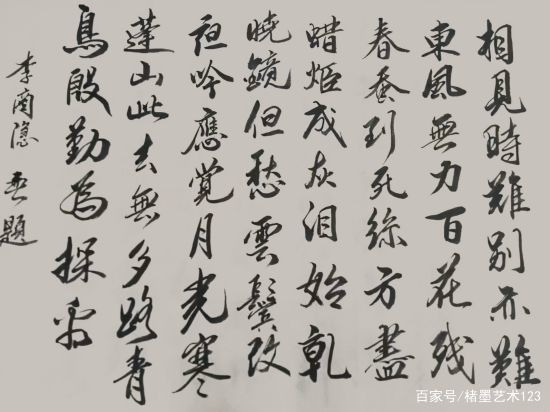 相見時難別亦難
東風無力百花残
春蚕到死絲方盡
蜡炬成灰泪始乾
曉鏡但愁雲鬢改
夜吟應覺月光寒
蓬山此去無多路青
鳥殷勤為探看
李商隐 无題
百家号/楮墨艺术123